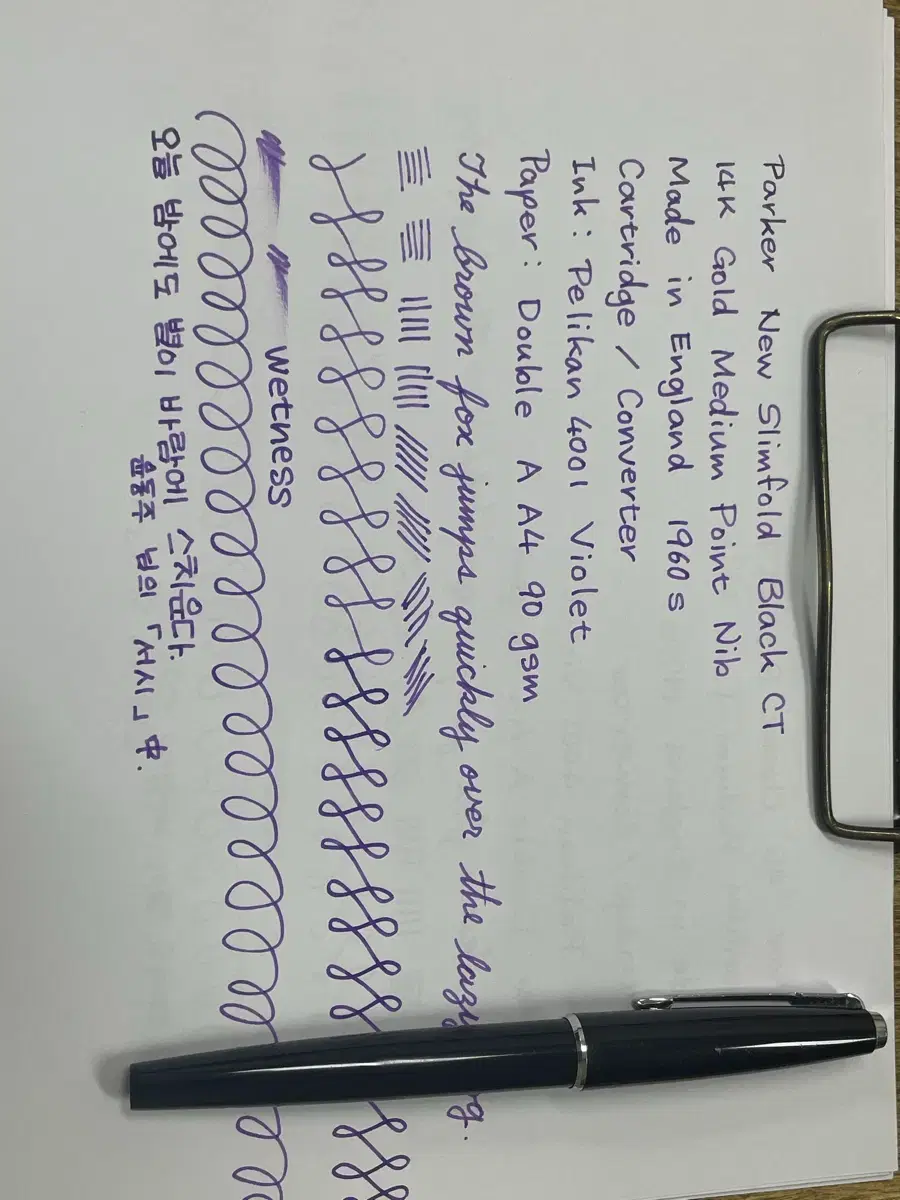 Parker New Slimfold Black CT
14K Gold Medium Point Nib
Made in England 1960s
Cartridge / Converter
Ink : Pelikan 4001 Violet
Paper : Double A A4 90 gsm
The brown fox jumps quickly over the lazy og.
wetness
오늘 밤에도 별이 바람에 스치운다.
윤동주 님의 「서시」 中.